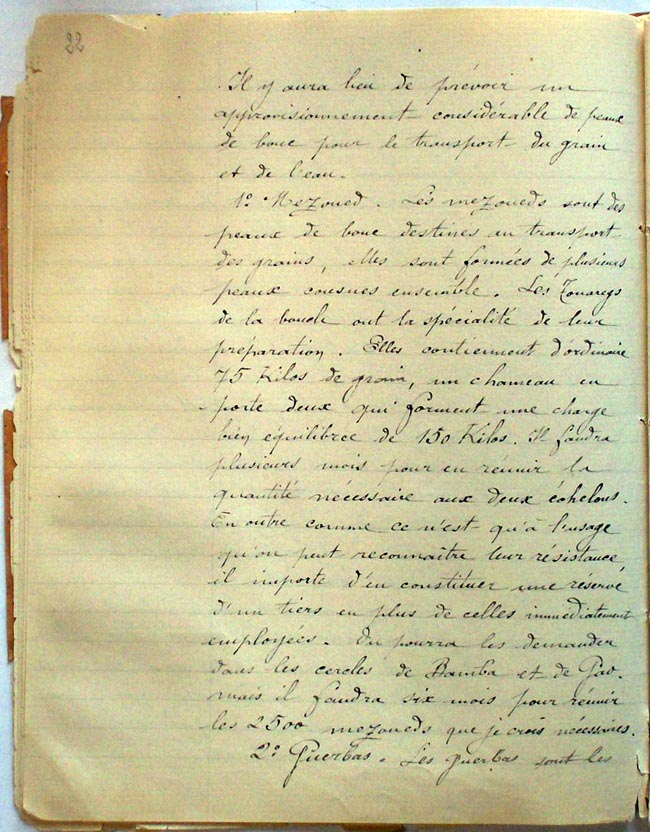 22
Il y aura lieu de prévoir un
approvisionnement considérable de peaux
de bouc pour le transport du grain
et de l'eau.
1º Mezoued. Les mezoueds sont des
peaux de bouc destinés au transport
des grains, elles sont formées de plusieurs
peaux cousues ensemble. Les Touaregs
de la boucle ont la spécialité de leur
préparation. Elles contiennent d'ordinaire
75 Kilos de grain, un chameau en
porte deux qui forment une charge
bien équilibrée de 150 Kilos. Il faudra
plusieurs mois pour en réunir la
quantité nécessaire aux deux échelons.
En outre comme ce n'est qu'à l'usage
qu'on peut reconnaître leur résistance,
il importe d'en constituer une réserve
d'un tiers en plus de celles immédiatement
employées. On pourra les demander
dans les cercles de Bamba et de Gao.
mais il faudra six mois pour réunir
les 2500 mezoueds que je crois nécessaires.
2º Guerbas. Les guerbas sont les